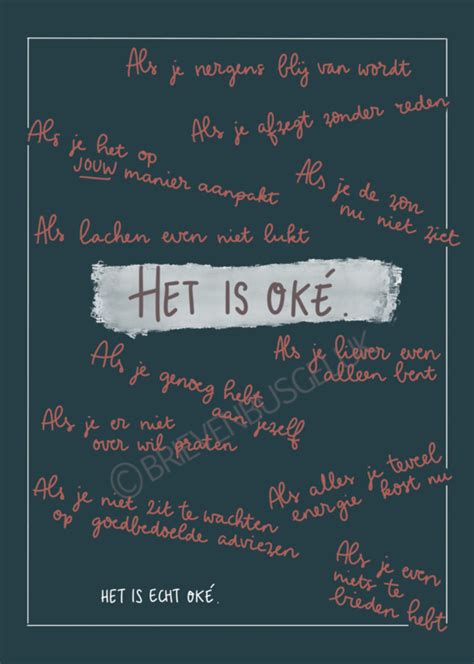 Als je nergens blij van wordt
Als je afzegt zonder reden
Als je het op
JOUW manier aanpakt
Als je de zon
nu niet ziet
Als lachen even niet lukt
HET IS OKÉ.
Als je liever even
alleen bent
Als je genoeg hebt
aan jezelf
Als je er niet
over wil praten
© BRIEVENBUSGELUK
Als alles je teveel
energie kost nu
Als je niet zit te wachten
op goedbedoelde adviezen
Als je even
niets te
bieden hebt
HET IS ECHT OKÉ.